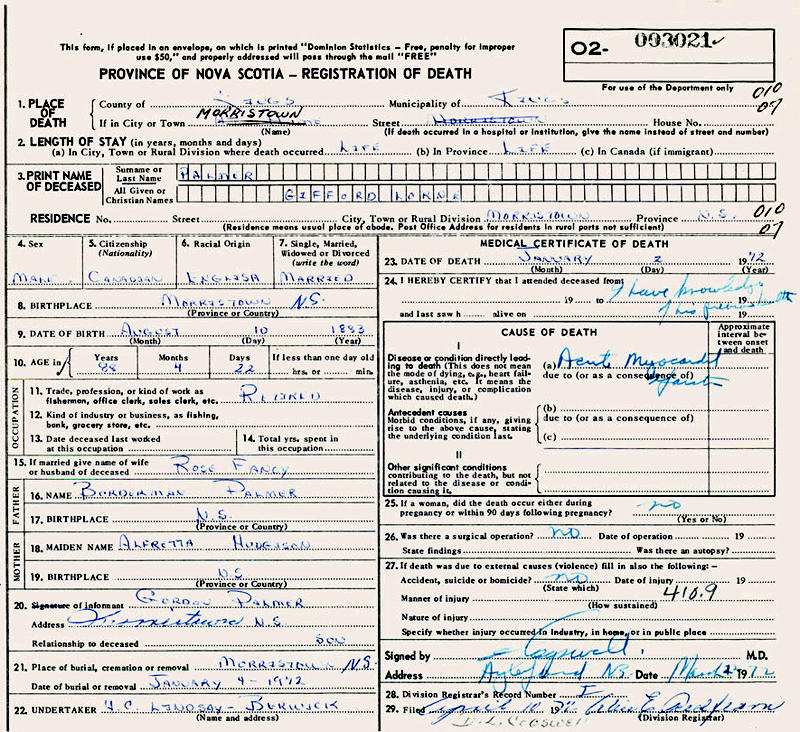 This form, if placed in an envelope, on which is printed "Dominion Statistics – Free, penalty for improper
use $50," and properly addressed will pass through the mail "FREE"
PROVINCE OF NOVA SCOTIA – REGISTRATION OF DEATH
O2- 003021
For use of the Department only
010
07
1. PLACE OF DEATH
County of KINGS Municipality of KINGS
If in City or Town MORRISTOWN Street MORRISTOWN House No.
(Name) (If death occurred in a hospital or institution, give the name instead of street and number)
2. LENGTH OF STAY (in years, months and days)
(a) In City, Town or Rural Division where death occurred LIFE (b) In Province LIFE (c) In Canada (if immigrant)
3. PRINT NAME OF DECEASED
Surname or Last Name PALMER
All Given or Christian Names GIFFORD LORNE
RESIDENCE No. Street City, Town or Rural Division MORRISTOWN Province N.S. 010
(Residence means usual place of abode. Post Office Address for residents in rural parts not sufficient) 07
4. Sex MALE
5. Citizenship (Nationality) CANADIAN
6. Racial Origin ENGLISH
7. Single, Married, Widowed or Divorced (write the word) MARRIED
8. BIRTHPLACE MORRISTOWN N.S.
(Province or Country)
9. DATE OF BIRTH AUGUST 10 1883
(Month) (Day) (Year)
10. AGE in Years Months Days If less than one day old
88 4 22 hrs. or min.
OCCUPATION
11. Trade, profession, or kind of work as
fishermon, office clerk, sales clerk, etc. RETIRED
12. Kind of industry or business, as fishing,
bank, grocery store, etc.
13. Date deceased last worked
at this occupation
14. Total yrs. spent in
this occupation
15. If married give name of wife
or husband of deceased ROSE FANCY
FATHER
16. NAME BORDERMAN PALMER
17. BIRTHPLACE N.S.
(Province or Country)
MOTHER
18. MAIDEN NAME ALFRETTA
19. BIRTHPLACE N.S
(Province or Country)
20. Signature of informant GORDON PALMER
Address N.S.
Relationship to deceased SON
21. Place of burial, cremation or removal MORRISTOWN N.S.
Date of burial or removal JANUARY 4 - 1972
22. UNDERTAKER H.C. LINDSAY - BERWICK
(Name and address)
MEDICAL CERTIFICATE OF DEATH
23. DATE OF DEATH JANUARY 2 1972
(Month) (Day) (Year)
24. I HEREBY CERTIFY that I attended deceased from I have knowledge
19 to 19 of his previous health
and last saw h alive on 19
CAUSE OF DEATH
Approximate interval between onset and death
I
Disease or condition directly leading to death (This does not mean the mode of dying, e.g., heart failure, asthenia, etc. It means the disease, injury, or complication which caused death.)
(a) Acute Myocardial
due to (or as a consequence of)
Antecedent causes
Morbid conditions, if any, giving rise to the above cause, stating the underlying condition last.
(b)
due to (or as a consequence of)
(c)
II
Other significant conditions
contributing to the death, but not related to the disease or condition causing it.
25. If a woman, did the death occur either during
pregnancy or within 90 days following pregnancy? no
(Yes or No)
26. Was there a surgical operation? no Date of operation 19
State findings Was there an autopsy?
27. If death was due to external causes (violence) fill in also the following:–
Accident, suicide or homicide? no Date of injury 19
(State which)
Manner of injury 410.9
(How sustained)
Nature of injury
Specify whether injury occurred in Industry, in home, or in public place
Signed by Cogswell M.D.
Address Aylesford N.S. Date March 1972
28. Division Registrar's Record Number
29. Filed April 10 1972
(Division Registrar)
D.L. COGSWELL